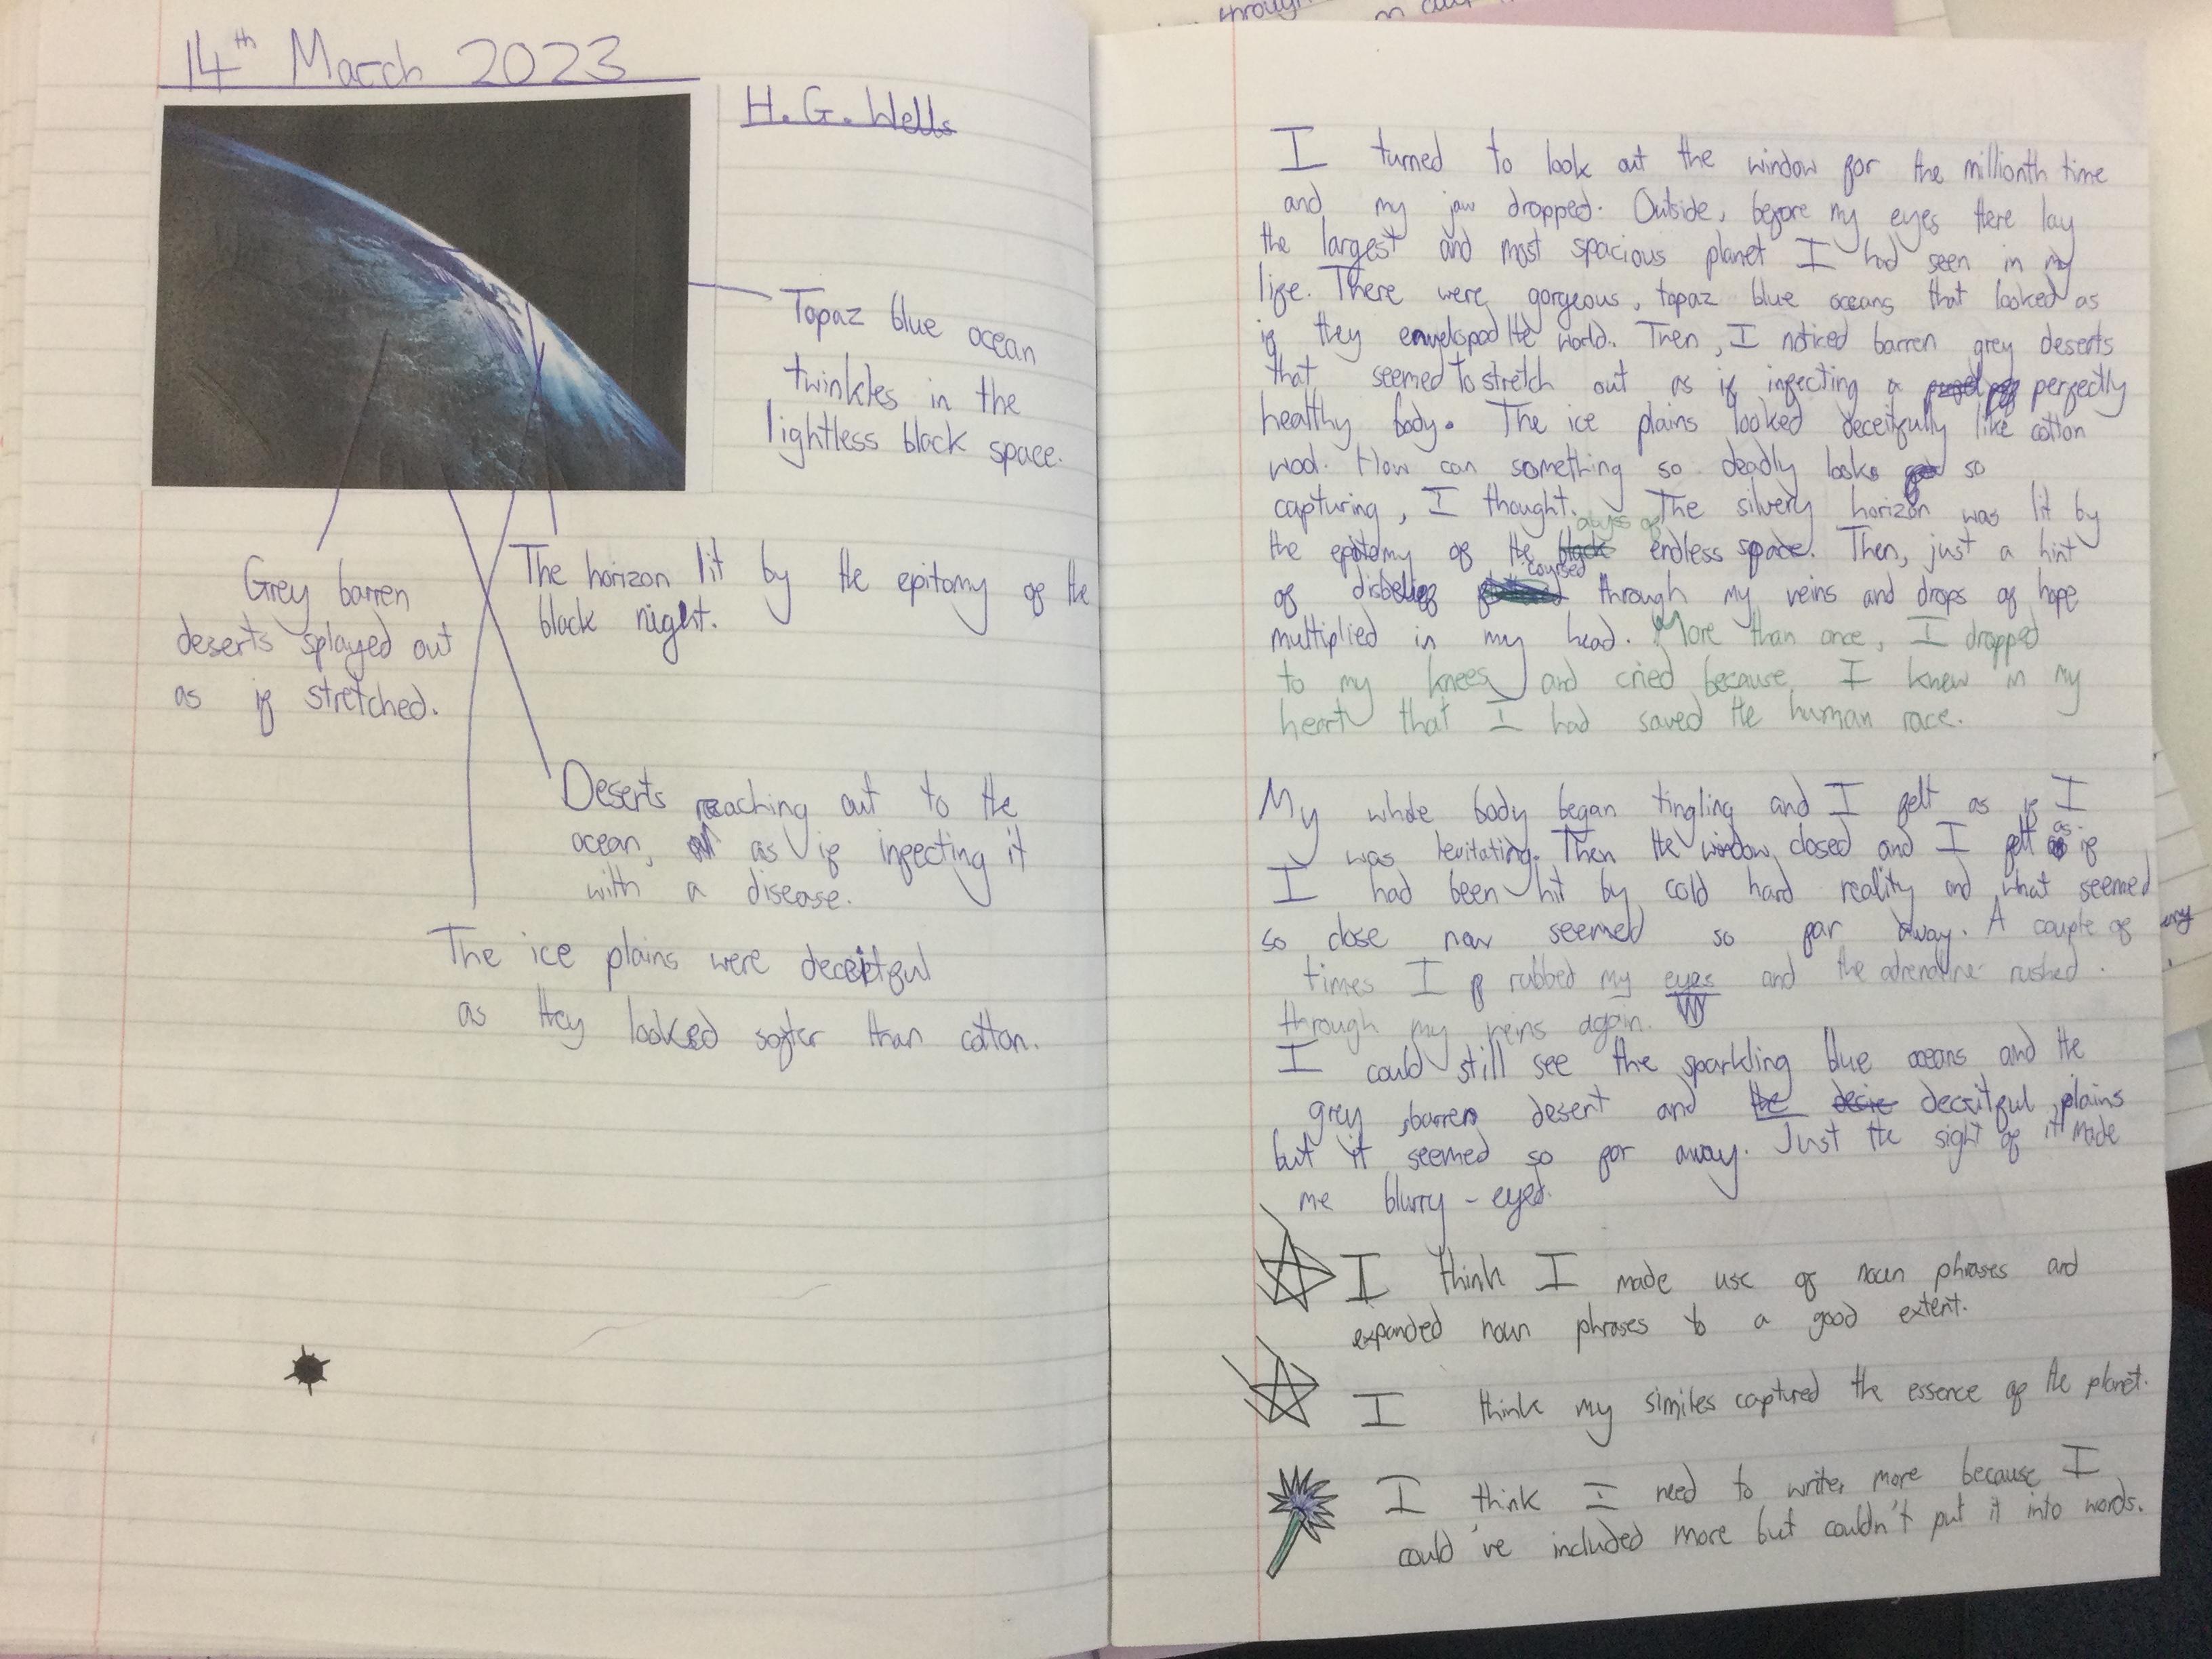 14th March 2023
H. G. Wells
Topaz blue ocean
twinkles in the
lightless black space.
Grey barren
deserts splayed out
as if stretched.
The horizon lit by the epitomy of the
black night.
Deserts reaching out to the
ocean, as if infecting it
with a disease.
The ice plains were deceitful
as they looked softer than cotton.
I turned to look out the window for the millionth time
and my jaw dropped. Outside, before my eyes there lay
the largest and most spacious planet I had seen in my
life. There were gorgeous, topaz blue oceans that looked as
if they enveloped the world. Then, I noticed barren grey deserts
that seemed to stretch out as if infecting a perfectly
healthy body. The ice plains looked deceitfully like cotton
wool. How can something so deadly looks so
capturing, I thought. The silvery horizon was lit by
abyss of
the epitomy of the black endless space. Then, just a hint
coursed
of disbelief through my veins and drops of hope
multiplied in my head. More than once, I dropped
to my knees and cried because I knew in my
heart that I had saved the human race.
My whole body began tingling and I felt as if I
was levitating. Then the window closed and I felt as if
I had been hit by cold hard reality and what seemed
so close now seemed so far away. A couple of
times I rubbed my eyes and the adrenaline rushed
through my veins again.
I could still see the sparkling blue oceans and the
grey, barren desert and the decie deceitful plains
but it seemed so far away. Just the sight of it made
me blurry-eyed.
I think I made use of noun phrases and
expanded noun phrases to a good extent.
I think my similes captured the essence of the planet.
I think I need to write more because I
could've included more but couldn't put it into words.